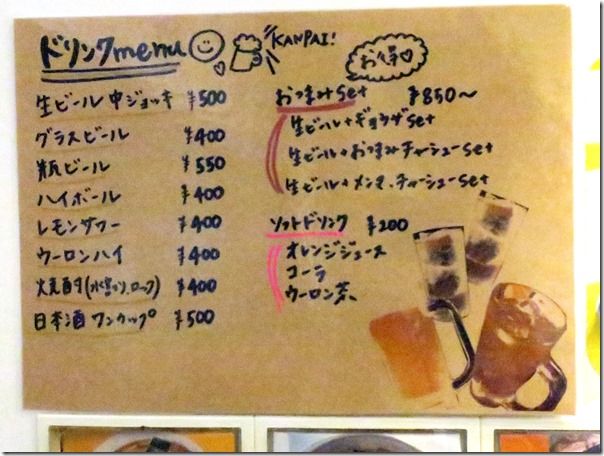 ドリンクmenu
KANPAI!
お得♡
生ビール 中ジョッキ ¥500
グラスビール ¥400
瓶ビール ¥550
ハイボール ¥400
レモンサワー ¥400
ウーロンハイ ¥400
焼酎(水割り、ロック) ¥400
日本酒 ワンカップ ¥500
おつまみset ¥850〜
生ビール+ギョウザset
生ビール+おつまみチャーシューset
生ビール+メンマ、チャーシューset
ソフトドリンク ¥200
オレンジジュース
コーラ
ウーロン茶